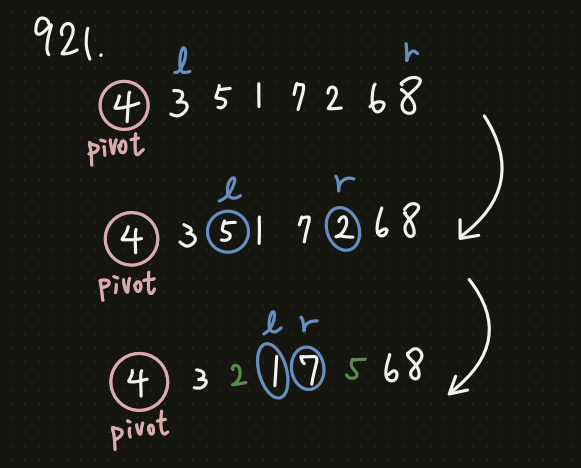 921.
l r
4 3 5 1 7 2 6 8
pivot
l r
4 3 5 1 7 2 6 8
pivot
l r
4 3 2 1 7 5 6 8
pivot